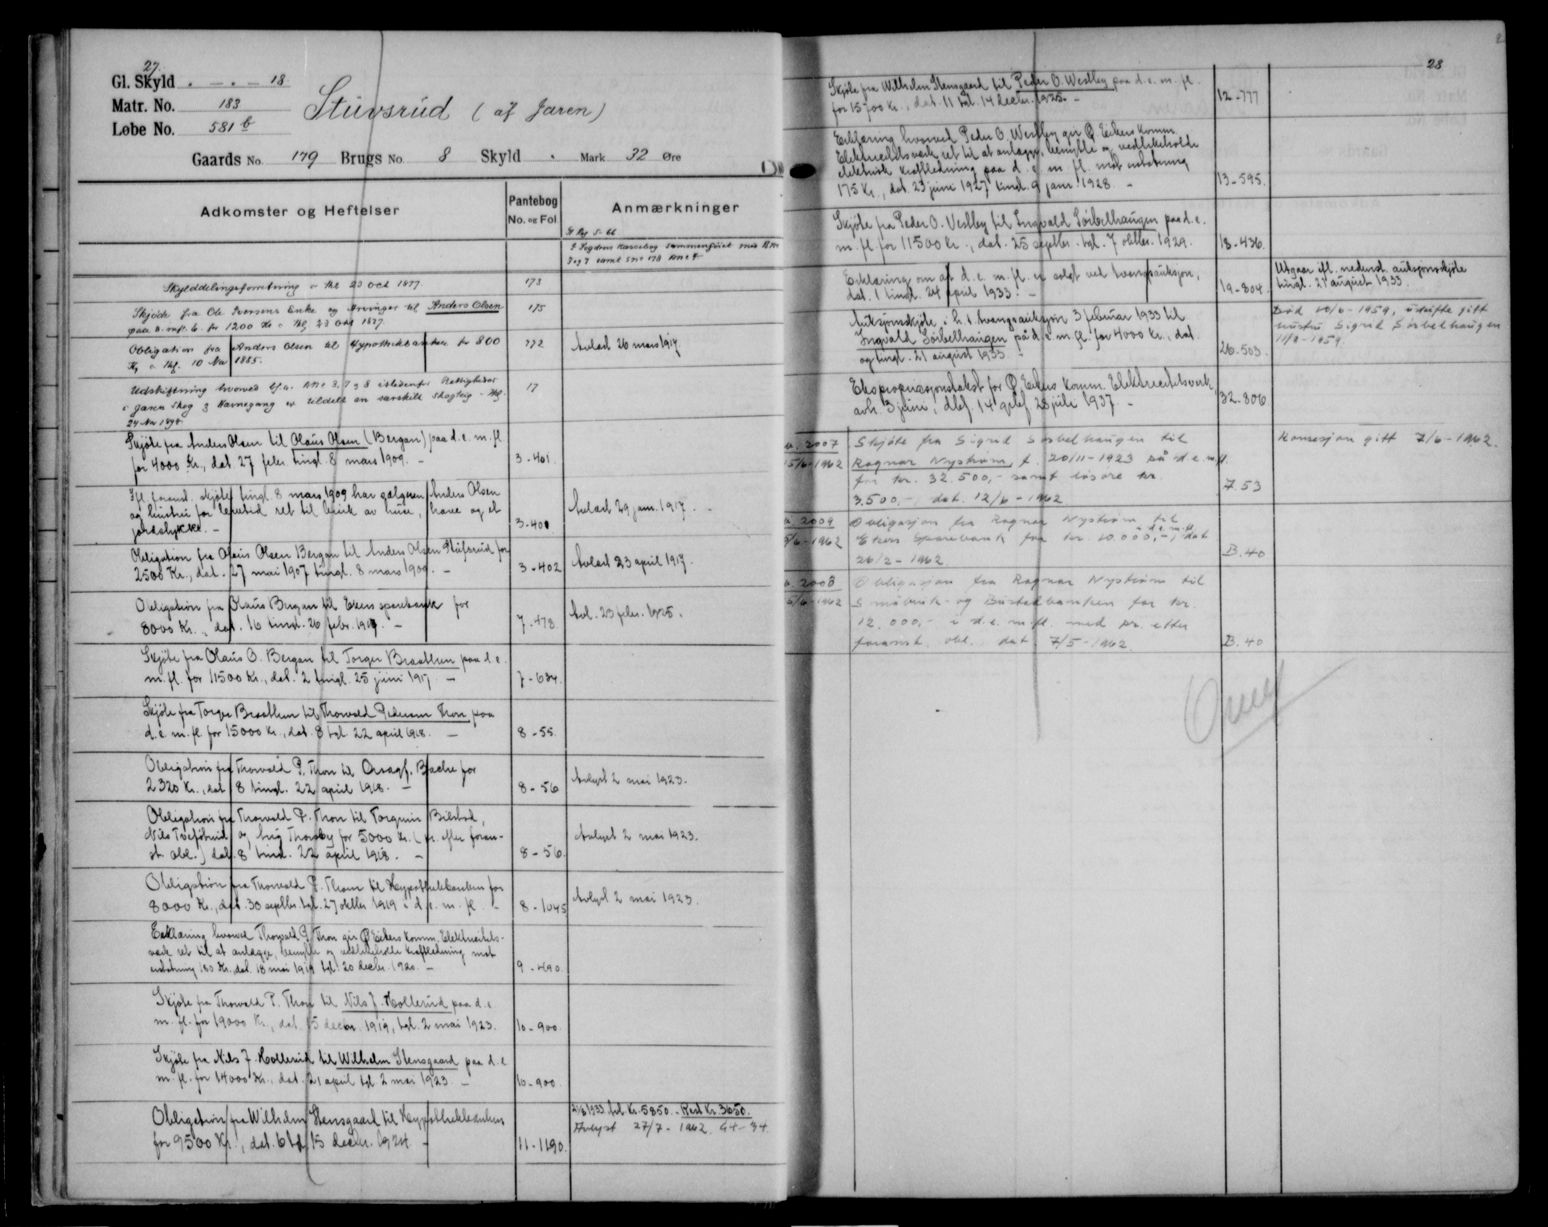 27.
Gl. Skyld . - . - 18
Matr. No. 183
Løbe No. 581 b
Stuvsrud (af Jaren)
Gaards No. 179 Brugs No. 8 Skyld . Mark 32 Øre
Adkomster og Heftelser
Pantebog
No. og Fol
Anmærkninger
Skylddelingsforretning Thl 23 Oct 1877. 173
Skjøde fra Ole Iversens Enke og Arvinger til Anders Olsen
for 1200 Kr Thl 23 Oct 1877. 175
Obligation fra Anders Olsen til Hypothekbanken for 800
Kr Thl. 10 Nov 1885. 772 Avlæst 26 mars 1917
Udskiftning hvorved bl.a. Bno 3, 7 og 8
i Jaren Skog og Havnegang er tildelt en særskilt Skogteig - Thl.
24 Nov 17
Skjøte fra Anders Olsen til Olaus Olsen (Bergan) paa d. e. m. fl
for 4000 Kr., dat. 27 febr tingl 8 mars 1909. - 3-401.
Ifl. foranst. skjøte tingl. 8 mars 1909 har sælgeren Anders Olsen
og hustru for levetid ret til bruk av huse, have og et
jordstykke. - 3-401 Avlæst 29 jan. 1917. -
Obligation fra Olaus Olsen Bergan til Anders Olsen Stufsrud for
2500 Kr., dat. 27 mai 1907 tingl. 8 mars 1909. - 3-402 Avlæst 23 april 1917.
Obligation fra Olaus Bergan til Ekers sparebank for
8000 Kr., dat. 16 tingl. 26 febr. 1917. - 7-478. Avl. 23 febr. 1925.
Skjøte fra Olaus O. Bergan til Torger Braathen paa d. e.
m. fl. for 11500 Kr., dat. 2 tingl. 25 juni 1917. - 7-634.
Skjøte fra Torger Braathen til Thorvald Pedersen Thon paa
d. e. m. fl for 15000 Kr., dat. 8 tgl. 22 april 1918. - 8-55.
Obligation fra Thorvald P. Thon til Bache for
2320 Kr., dat 8 tingl. 22 april 1918. - 8-56 Avlyst 2 mai 1923.
Obligation fra Thorvald P. Thon til Torgrim Bilstad,
Nils og for 5000 Kr. (pr. efter foran-
st. obl.) dat. 8 tingl. 22 april 1918. - 8-56. Avlyst 2 mai 1923.
Obligation fra Thorvald P. Thon til Hypothekbanken for
8000 Kr., dat. 30 septbr tgl. 27 oktbr 1919 i d. e. m. fl. - 8-1045 Avlyst 2 mai 1923.
Erklæring hvorved Thorvald P. Thon gir Ø. Eikers Komm. Elektricitets-
verk ret til at anlægge, benytte og vedlikeholde kraftledning mot
erstatning 180 Kr., dat. 18 mai 1919 tgl. 20 decbr. 1920. - 9-490.
Skjøte fra Thorvald P. Thon til Nils J. Hollerud paa d. e.
m. fl. for 19000 Kr., dat. 15 decbr. 1919, tgl. 2 mai 1923. 10-900.
Skjøte fra Nils J. Hollerud til Wilhelm Stensgaard paa d. e
m. fl. for 14000 Kr., dat. 21 april tgl 2 mai 1923. - 10-900.
Obligation fra Wilhelm Stensgaard til Hypothekbanken
for 9500 Kr., dat. 6 tgl 15 decbr. 1924. - 11-1190.
Kr. 5850. - Rest Kr. 3650.
Avlyst 27/7 - 1962.
28
Skjøte fra Wilhelm Stensgaard til Peder O. Westby paa d. e. m. fl.
for 15700 Kr., dat. 11 tgl. 14 decbr. 1925. - 12-777
Erklæring hvorved Peder O. Westby gir Ø. Eikers Komm.
Elektricitetsverk ret til at anlægge, benytte og vedlikeholde
elektrisk kraftledning paa d. e m. fl. mot erstatning
175 Kr., dat. 23 juni 1927 tingl. 9 jan. 1928. - 13-595.
Skjøte fra Peder O. Vestby til Ingvald Sørbelhaugen paa d. e.
m. fl for 11500 Kr., dat. 25 septbr. tgl. 7 oktbr. 1929. 13-436.
Erklæring om at d. e. m. fl. er solgt ved tvangsauksjon,
dat. 1 tingl. 24 april 1933. - 19-804. Utgaar ifl. nedenst. auksjonsskjøte
tingl. 21 august 1933.
Auksjonsskjøte i h. t. tvangsauksjon 3 februar 1933 til
Ingvald Sørbelhaugen på d. e. m. fl. for 4000 Kr., dat.
og tingl. 21 august 1933. - 20-503.
Død 20/6-1959, uskifte gitt
hustru Sigrid Sørbelhaugen
11/8-1959.
Ekspropriasjonstakst for Ø. Eikers Komm. Elektricitetsverk,
avh. 3 juni, dbf. 14 28 juli 1937. - 32-806
2007
15/6-1962
Skjøte fra Sigrid Sørbelhaugen til
Ragnar Nystrøm, f. 20/11-1923 på d. e. m. fl.
for kr. 32.500,- samt løsøre kr.
3.500,-, dat. 12/6-1962 753 Konsesjon gitt 7/6-1962.
2009
/6-1962
Obligasjon fra Ragnar Nystrøm til
Ekers Sparebank for kr. 10.000,-, dat
26/2-1962. B. 40
2008
/6-1962
Obligasjon fra Ragnar Nystrøm til
Småbruk- og Bustadbanken for kr.
12.000,- i d. e. m. fl. med pr. etter
foranst. obl. dat. 7/5-1962. B. 40